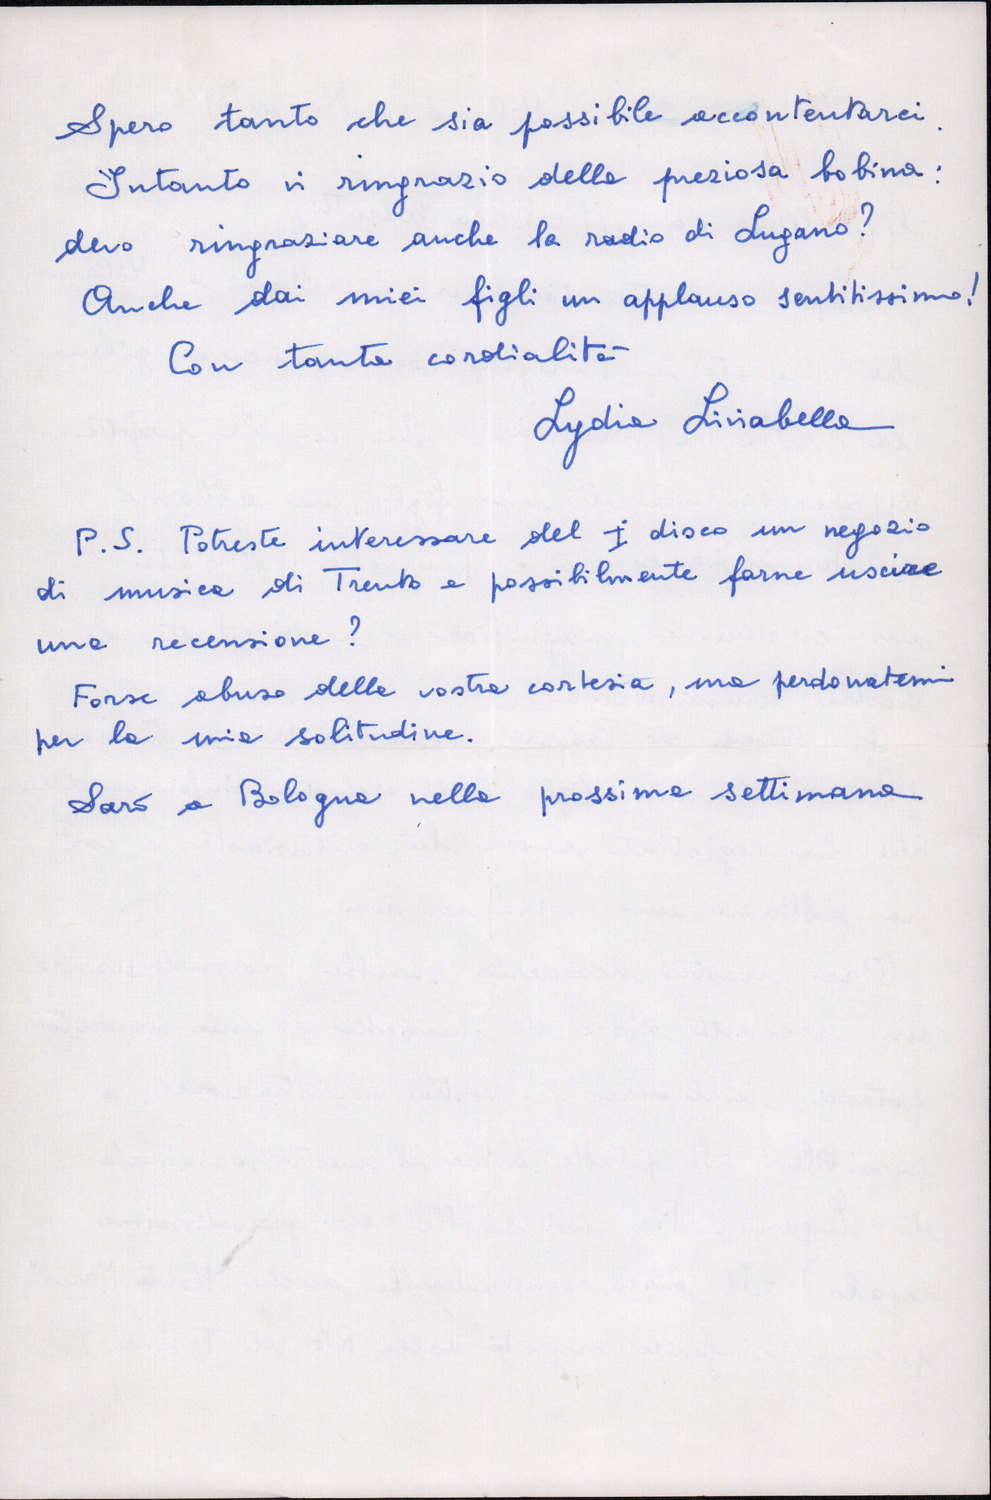 Spero tanto che sia possibile accontentarci.
Intanto vi ringrazio della preziosa bobina:
devo ringraziare anche la radio di Lugano?
Anche dai miei figli un applauso sentitissimo!
Con tanta cordialità
Lydia Liviabella
P.S. Potreste interessare del I disco un negozio
di musica di Trento e possibilmente farne uscire
una recensione?
Forse abuso della vostra cortesia, ma perdonatemi
per la mia solitudine.
Sarò a Bologna nella prossima settimana